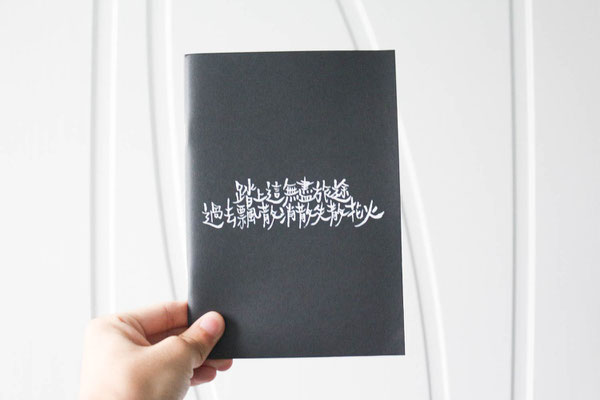 踏上這無盡旅途
過去飄散消散失散花火